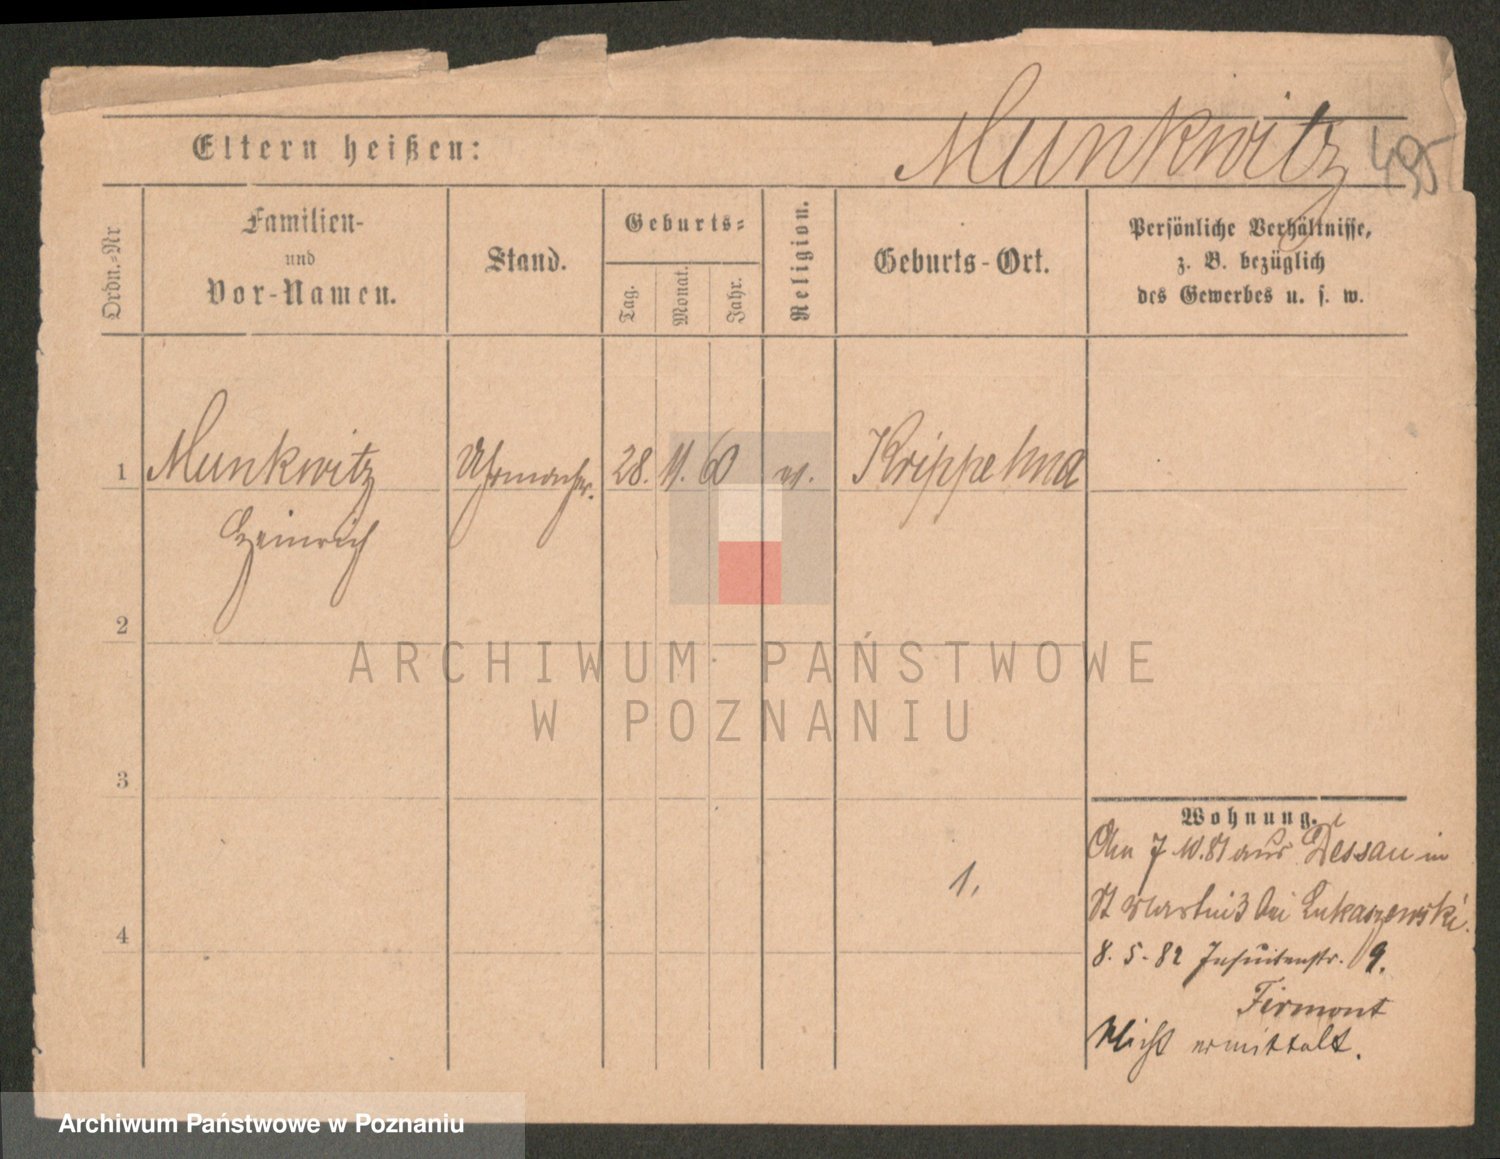 Eltern heißen:
Munkwitz 495
Ordn.=Nr
Familien-
und
Vor-Namen.
Stand.
Geburts=
Tag.
Monat.
Jahr.
Religion.
Geburts-Ort.
Persönliche Verhältnisse,
z. B. bezüglich
des Gewerbes u. s. w.
1 Munkwitz Uhrmacher. 28. 11. 60 ev. Krippehna
Heinrich
2
3
4
1.
Wohnung.
7 10.81 aus Dessau in
St Martin 3 bei Lukaszewski.
8. 5. 82 Jesuitenstr. 9.
Firmont
Nicht ermittelt.
ARCHIWUM PAŃSTWOWE
W POZNANIU
Archiwum Państwowe w Poznaniu